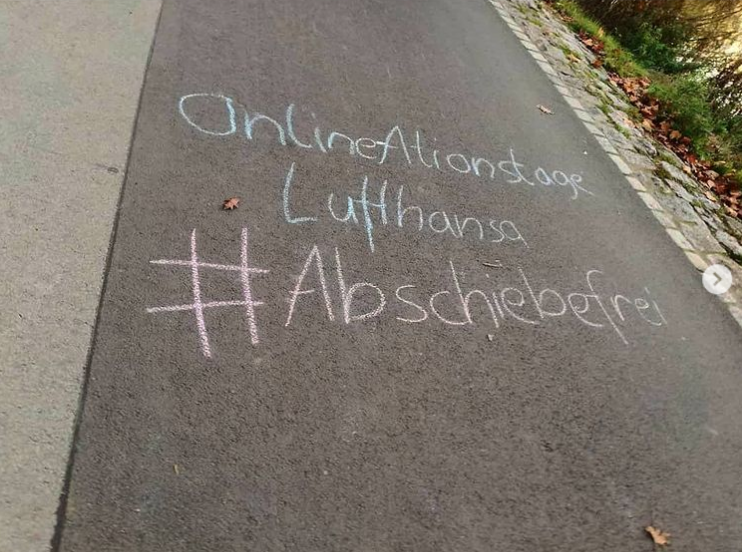 OnlineAtionstage
Lufthansa
#Abschiebefrei